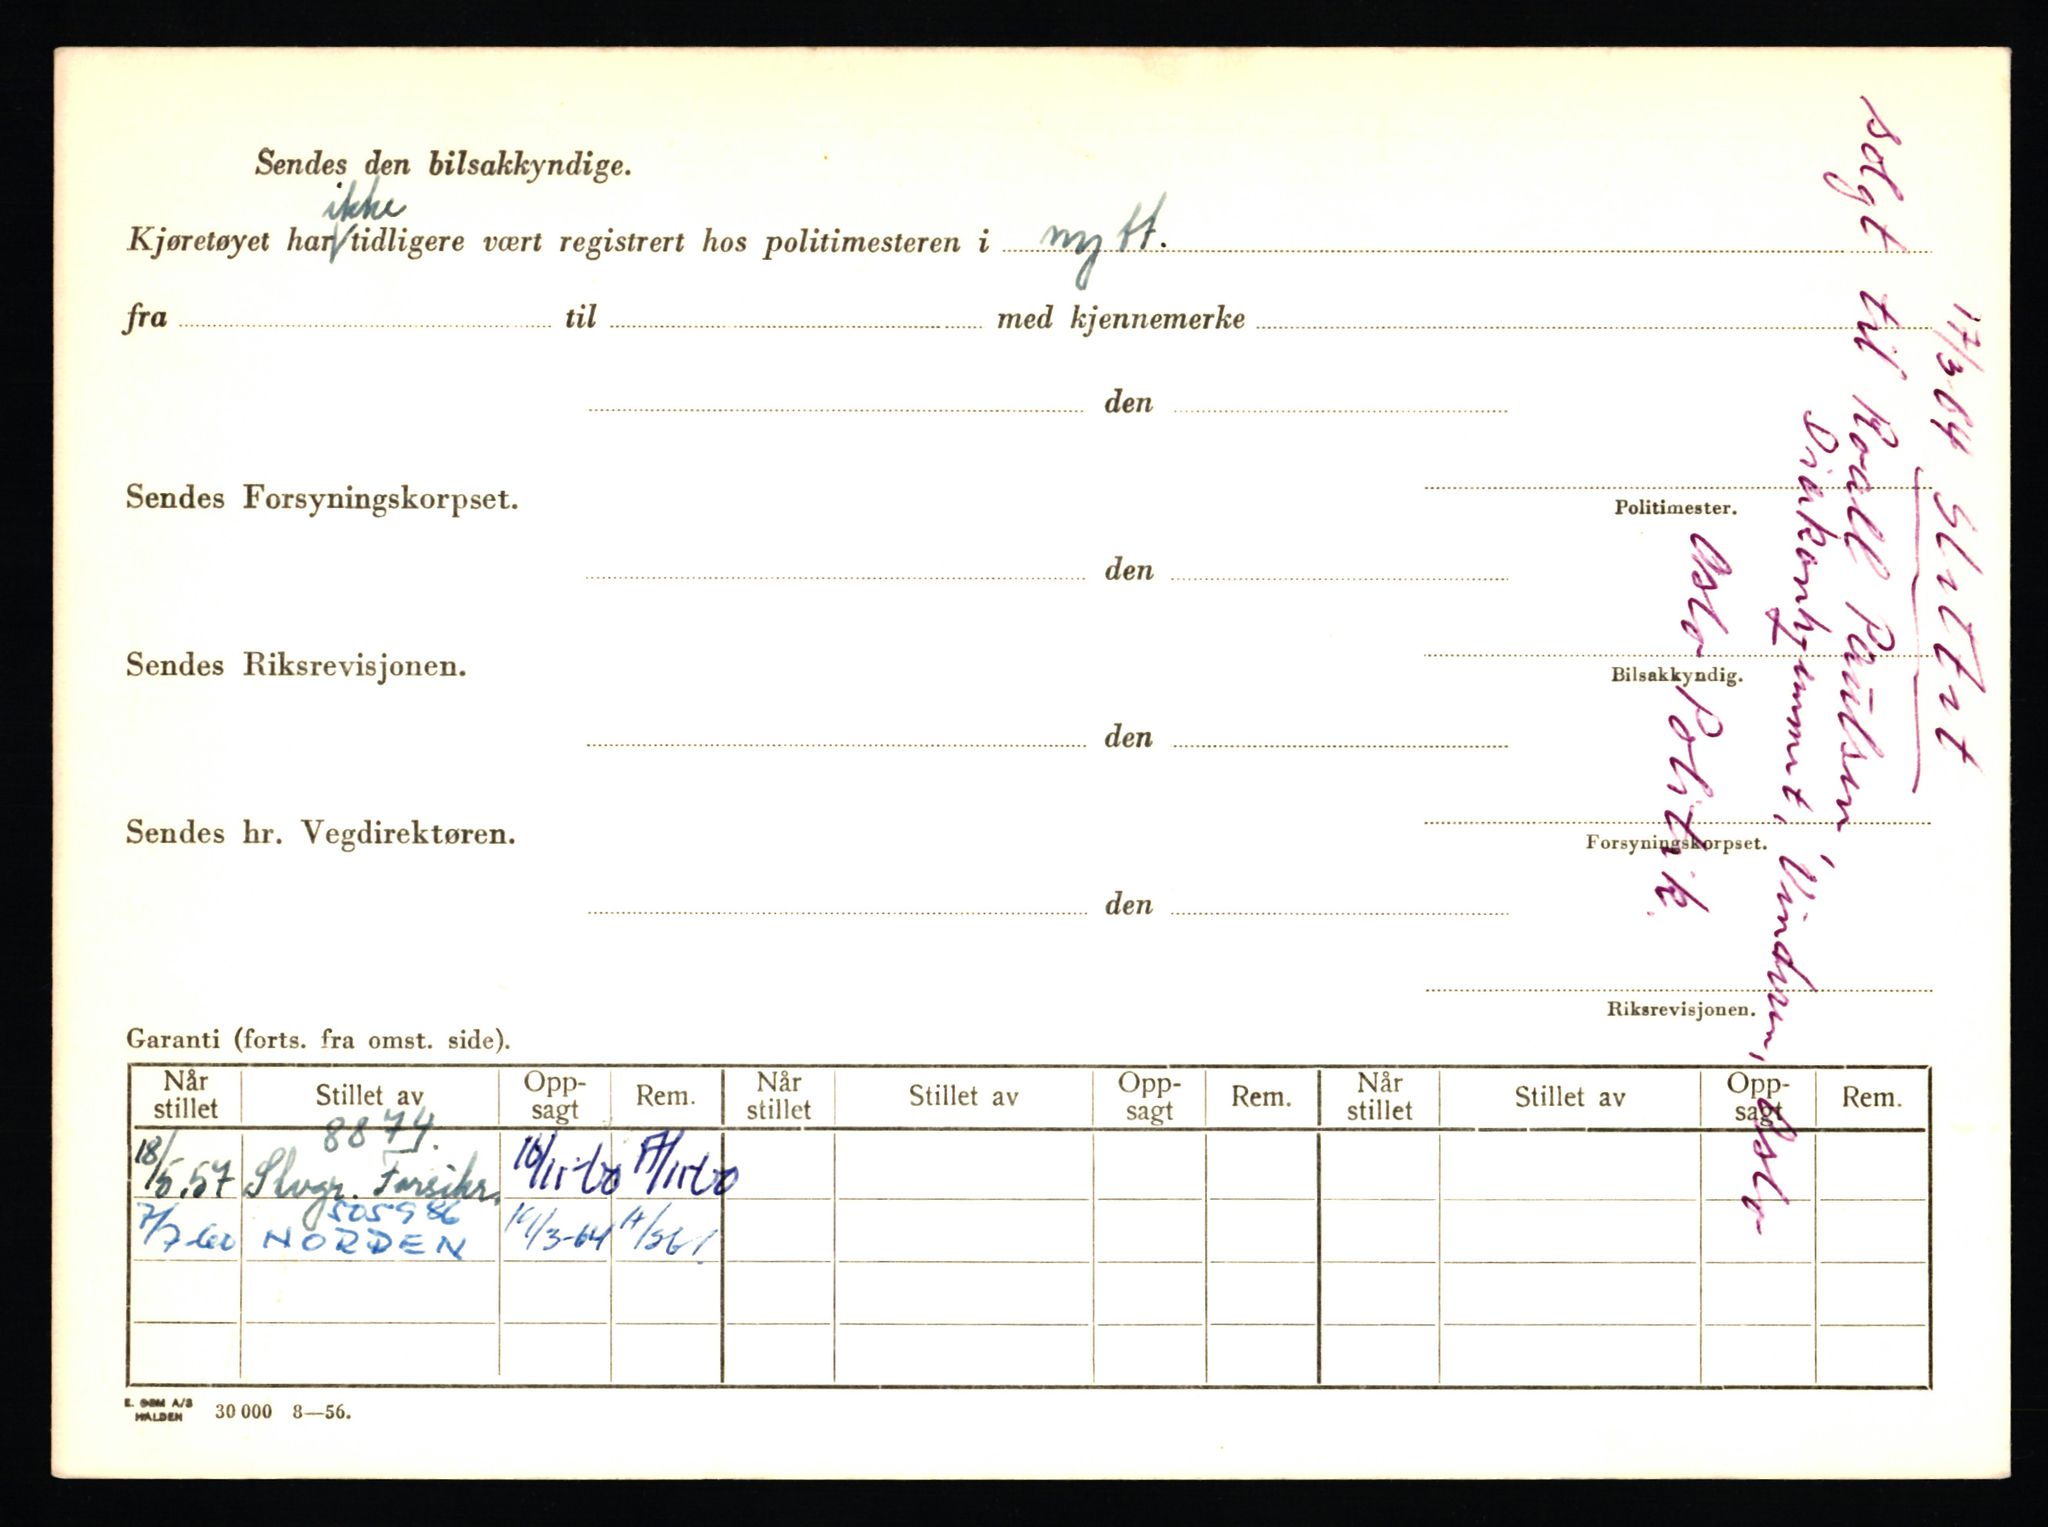 Sendes den bilsakkyndige.
ikke
Kjøretøyet har tidligere vært registrert hos politimesteren i nytt.
fra til med kjennemerke
den
Sendes Forsyningskorpset.
Politimester.
den
Sendes Riksrevisjonen.
Bilsakkyndig.
den
Sendes hr. Vegdirektøren.
Forsyningskorpset.
den
Riksrevisjonen.
17/3 64 Slettet
solgt til Roall Paulsen,
Diakonhjemmet, Vinderen, Oslo
Oslo Politik.
Garanti (forts. fra omst. side).
Når stillet Stillet av Opp-sagt Rem. Når stillet Stillet av Opp-sagt Rem. Når stillet Stillet av Opp-sagt Rem.
8874.
18/5.57 Forsikr.
505986
7/7-60 NORDEN
E. SEM A/S
HALDEN
30 000 8—56.